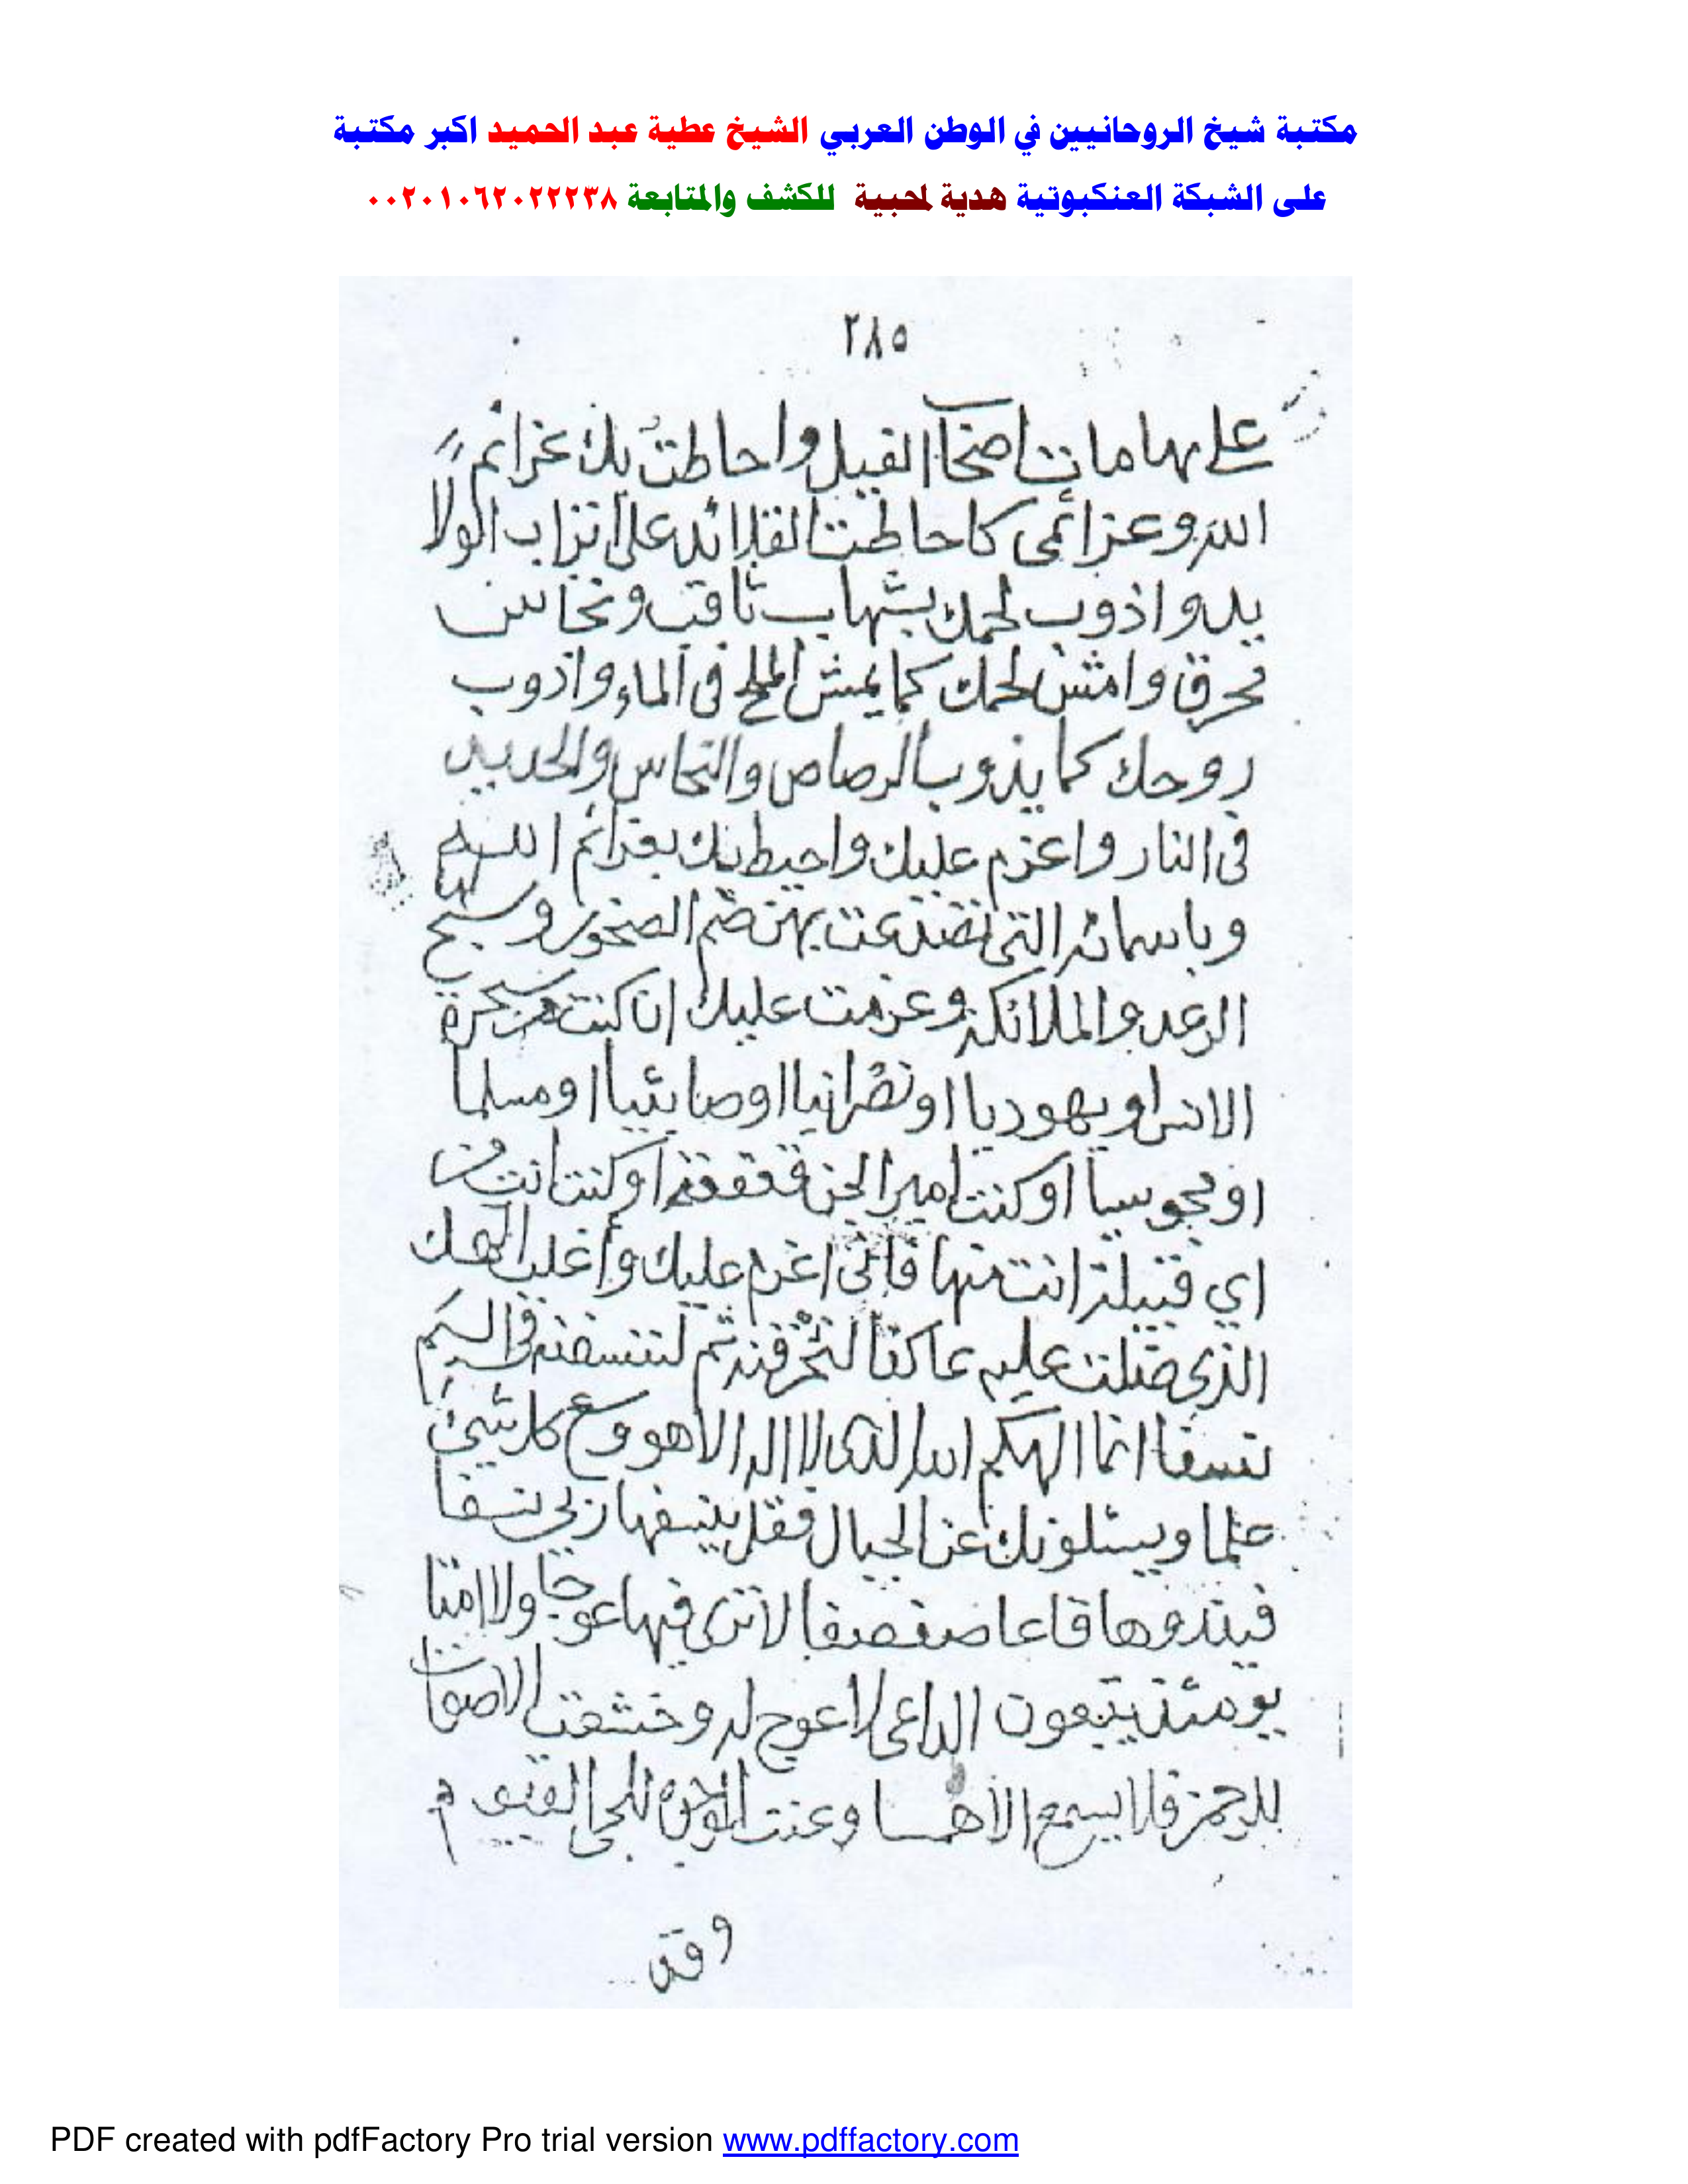 مكتبة شيخ الروحانيين في الوطن العربي الشيخ عطية عبد الحميد اكبر مكتبة
على الشبكة العنكبوتية هدية لمحبية للكشف والمتابعة ٠٠٢٠١٠٦٢٠٢٢٢٣٨
٢٨٥
على هامات اصحاب الفيل واحاطت بك عزائم
الله وعزائمى كاحاطت القلائد على اتراب الولا
يد واذوب لحمك بشهاب ثاقب ونحاس
محرق وامش لحمك كما يمش الملح فى الماء واذوب
روحك كما يذوب الرصاص والنحاس والحديد
فى النار واعزم عليك واحيط بك بعزائم الله
وباسمائه التى تصدعت بهن صم الصخور وسبح لها
الرعد والملائكة وعزمت عليك ان كنت من سحرة
الانس او يهوديا او نصرانيا او صابئيا او مسلما
او مجوسيا او كنت امير الجن قفقفة او كنت انت من
اي قبيلة انت منها فانى اعزم عليك وأغلب الهك
الذى ضلت عليه عاكفا لنحرقنه ثم لننسفنه فى اليم
نسفا انما الهكم الله الذى لا اله الا هو وسع كل شيئ
علما ويسئلونك عن الجبال فقل ينسفها ربى نسفا
فيذروها قاعا صفصفا لا ترى فيها عوجا ولا امتا
يومئذ يتبعون الداعى لا عوج له وخشعت الاصوات
للرحمن فلا تسمع الا همسا وعنت الوجوه للحى القيوم
وقد
PDF created with pdfFactory Pro trial version www.pdffactory.com